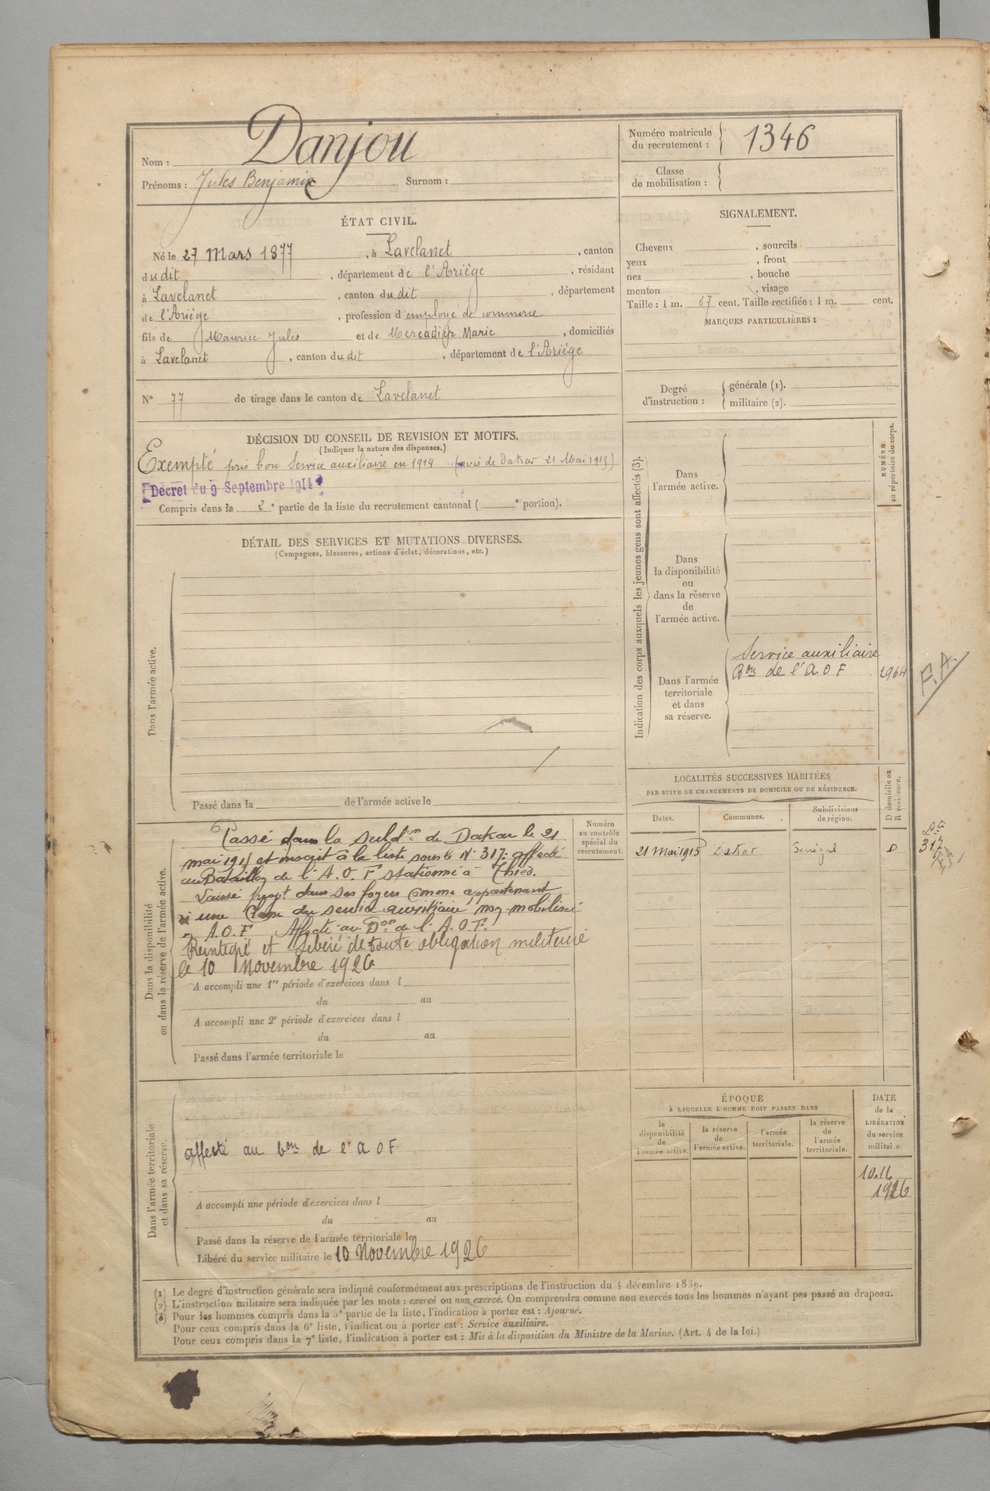 Nom : Danjou
Prénoms : Jules Benjamin Surnom :
Numéro matricule du recrutement : 1346
Classe de mobilisation :
ÉTAT CIVIL.
Né le 27 Mars 1877, à Lavelanet, canton
dudit, département de l'Ariège, résidant
à Lavelanet, canton dudit, département
de l'Ariège, profession d'employé de commerce
fils de Maurice Jules et de Mercadier Marie, domiciliés
à Lavelanet, canton dudit, département de l'Ariège
N° 77 de tirage dans le canton de Lavelanet
SIGNALEMENT.
Cheveux , sourcils
yeux , front
nez , bouche
menton , visage
Taille : 1 m. 67 cent. Taille rectifiée : 1 m. cent.
MARQUES PARTICULIÈRES :
Degré d'instruction : générale (1).
militaire (2).
DÉCISION DU CONSEIL DE REVISION ET MOTIFS.
(Indiquer la nature des dispenses.)
Exempté pris bon Service auxiliaire en 1914 (avis de Dakar 21 Mai 1915)
Décret du 9 Septembre 1914
Compris dans la 2e partie de la liste du recrutement cantonal ( e portion).
DÉTAIL DES SERVICES ET MUTATIONS DIVERSES.
(Campagnes, blessures, actions d'éclat, décorations, etc.)
Dans l'armée active.
Passé dans la de l'armée active le
Indication des corps auxquels les jeunes gens sont affectés (3).
NUMÉRO au répertoire du corps.
Dans l'armée active.
Dans la disponibilité ou dans la réserve de l'armée active.
Dans l'armée territoriale et dans sa réserve.
Service auxiliaire
Bon de l'AOF 2964
F.A.
LOCALITÉS SUCCESSIVES HABITÉES
PAR SUITE DE CHANGEMENTS DE DOMICILE OU DE RÉSIDENCE.
Dates. Communes. Subdivisions de région. D domicile ou R résidence.
21 Mai 1915 Dakar Sénégal D
317
Numéro au contrôle spécial du recrutement.
Dans la disponibilité ou dans la réserve de l'armée active.
Passé dans la subdon de Dakar le 21
mai 1915 et inscrit à la liste sous le N° 317. affecté
au Bataillon de l'A.O.F stationné à Thiès.
Laissé dans ses foyers comme appartenant
à une Classe du service auxiliaire non mobilisée
en A.O.F. Affecté au Bon de l'A.O.F.
Réintégré et libéré de toute obligation militaire
le 10 Novembre 1926
A accompli une 1re période d'exercices dans l
du au
A accompli une 2e période d'exercices dans l
du au
Passé dans l'armée territoriale le
ÉPOQUE
À LAQUELLE L'HOMME DOIT PASSER DANS
la disponibilité de l'armée active.
la réserve de l'armée active.
l'armée territoriale.
la réserve de l'armée territoriale.
DATE de la LIBÉRATION du service militaire.
10.11
1926
Dans l'armée territoriale et dans sa réserve.
affecté au bon de l'AOF
A accompli une période d'exercices dans l
du au
Passé dans la réserve de l'armée territoriale le
Libéré du service militaire le 10 Novembre 1926
(1) Le degré d'instruction générale sera indiqué conformément aux prescriptions de l'instruction du 4 décembre 1889.
(2) L'instruction militaire sera indiquée par les mots : exercé ou non exercé. On comprendra comme non exercés tous les hommes n'ayant pas passé au drapeau.
(3) Pour les hommes compris dans la 5e partie de la liste, l'indication à porter est : Ajourné.
Pour ceux compris dans la 6e liste, l'indication à porter est : Service auxiliaire.
Pour ceux compris dans la 7e liste, l'indication à porter est : Mis à la disposition du Ministre de la Marine. (Art. 4 de la loi.)